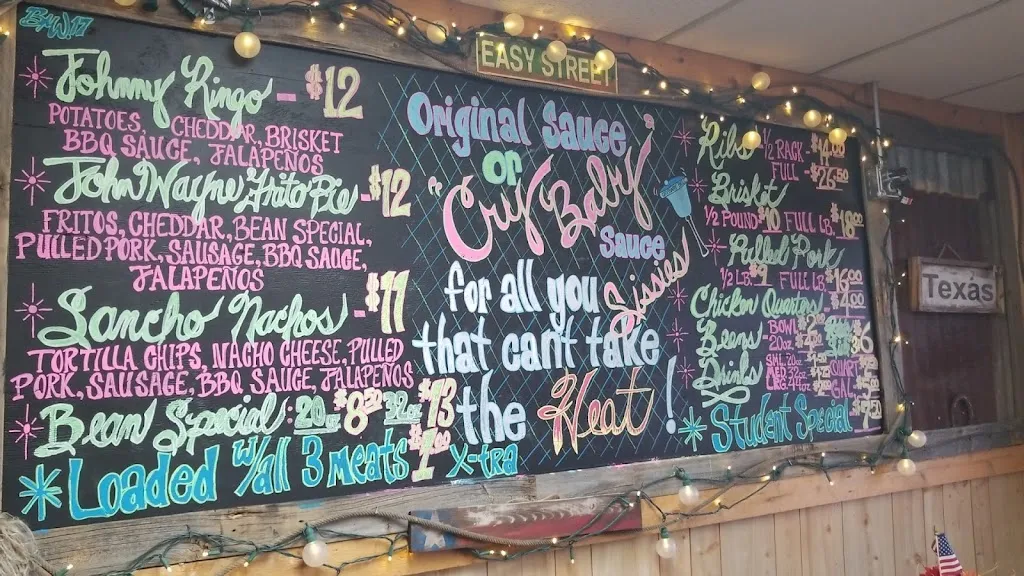 EASY STREET
Johnny Ringo - $12
POTATOES, CHEDDAR, BRISKET
BBQ SAUCE, JALAPEÑOS
John Wayne Frito Pie - $12
FRITOS, CHEDDAR, BEAN SPECIAL,
PULLED PORK, SAUSAGE, BBQ SAUCE,
JALAPEÑOS
Sancho Nachos - $11
TORTILLA CHIPS, NACHO CHEESE, PULLED
PORK, SAUSAGE, BBQ SAUCE, JALAPEÑOS
Bean Special: 20oz $8.50 32oz $13
Loaded w/all 3 meats $1.00 X-tra
Original Sauce
or
"Cry Baby"
Sauce
for all you Sissies
that can't take
the Heat!
Ribs 1/2 RACK -
FULL -
Brisket
1/2 POUND $10 FULL LB. $18.00
Pulled Pork
1/2 LB. $9 FULL LB. $16.00
Chicken Quarters $4.00
Beans - BOWL
20oz
QUART
Drinks
GAL
Student Special
Texas